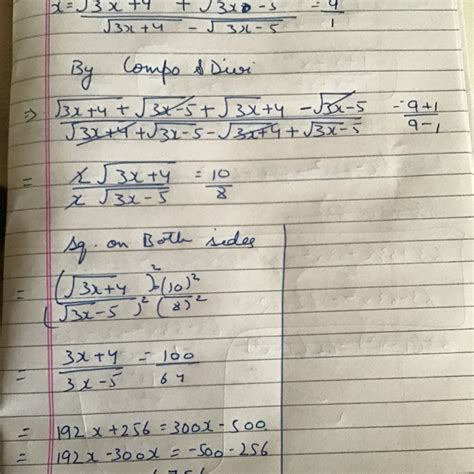 x = √3x+4 + √3x-5 / √3x+4 - √3x-5 = 9/1
By Compo & Divi
⇒ √3x+4 + √3x-5 + √3x+4 - √3x-5 / √3x+4 + √3x-5 - √3x+4 + √3x-5 = 9+1 / 9-1
= 2√3x+4 / 2√3x-5 = 10/8
Sq. on Both sides
= (√3x+4)² / (√3x-5)² = (10)² / (8)²
= 3x+4 / 3x-5 = 100/64
= 192x+256 = 300x-500
= 192x-300x = -500-256